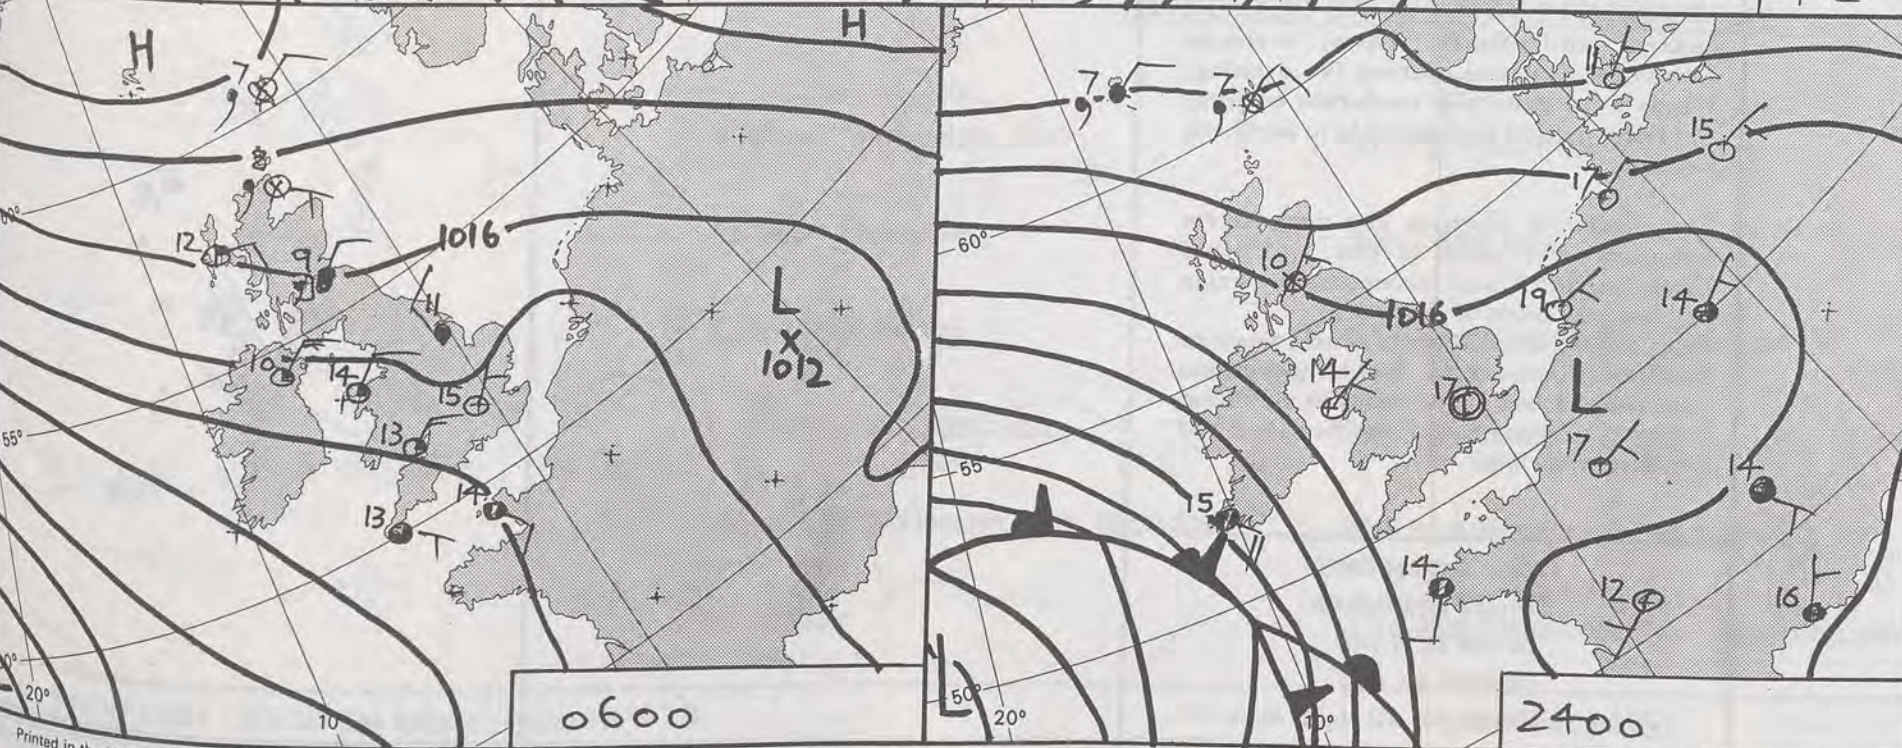 H
H
7
8
60°
12
9
1016
11
L
x
1012
10
14
15
13
55°
14
13
20°
10
0600
Printed in
7
7
11
15
17
60°
10
1016
19
14
14
17
L
17
55
15
14
14
12
16
L
50°
20°
10°
2400